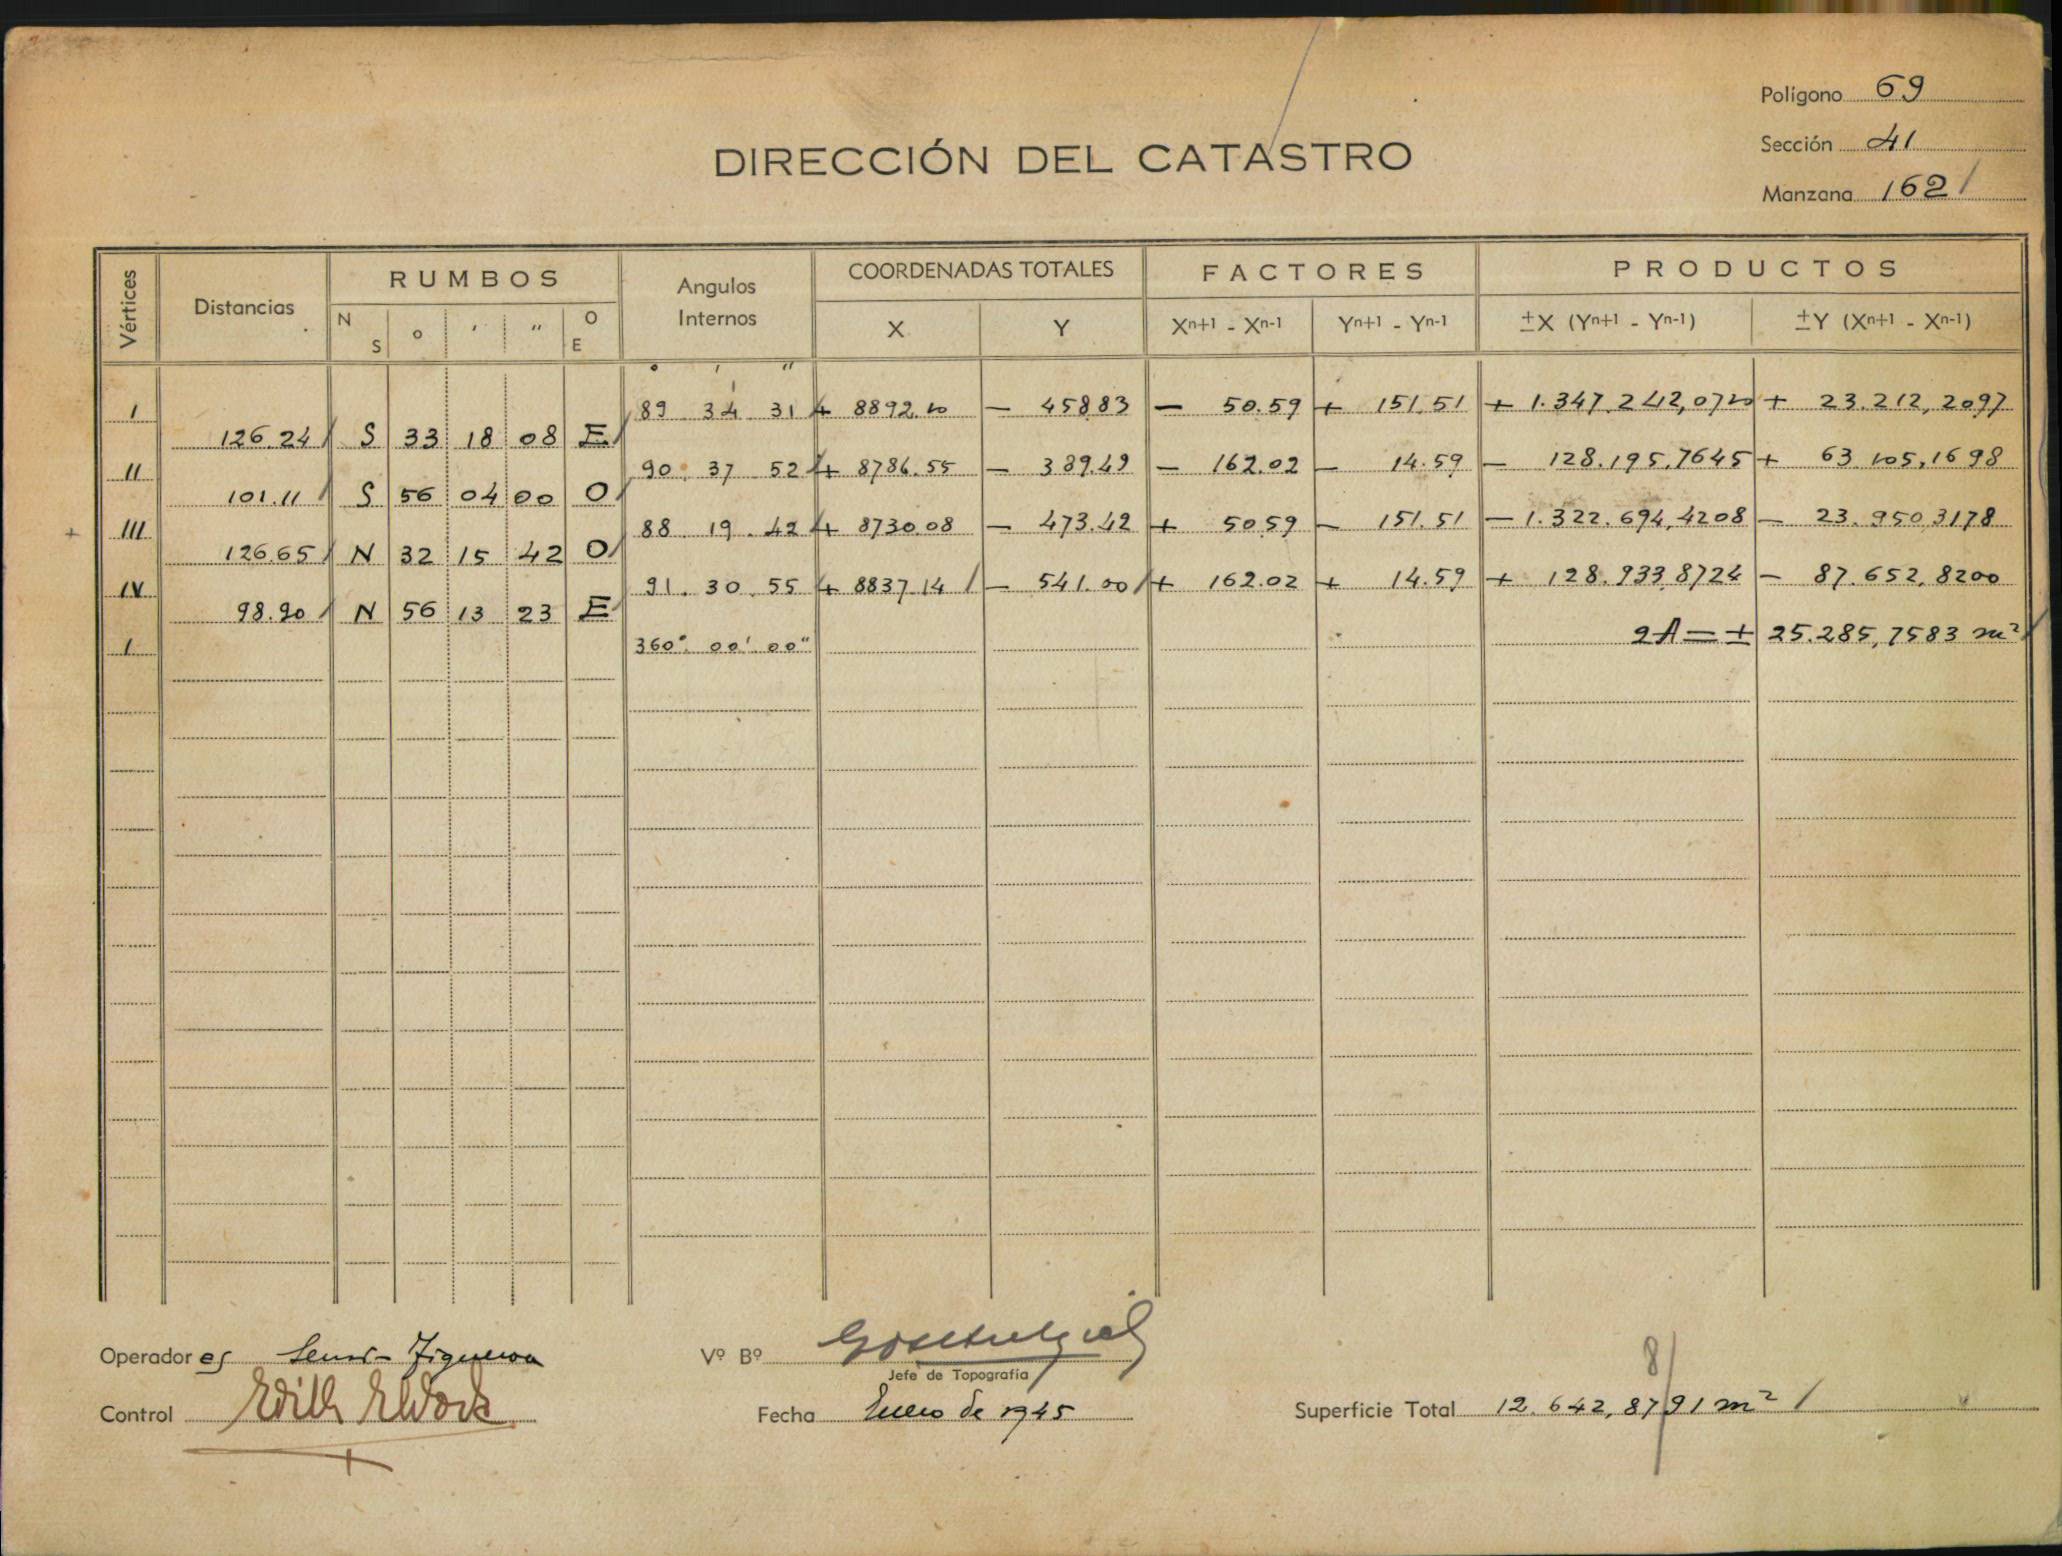 Polígono 69
Sección 41
Manzana 162
DIRECCIÓN DEL CATASTRO
Vértices Distancias RUMBOS Angulos Internos COORDENADAS TOTALES FACTORES PRODUCTOS
N S ° ′ ″ O E X Y Xn+1 - Xn-1 Yn+1 - Yn-1 ±X (Yn+1 - Yn-1) ±Y (Xn+1 - Xn-1)
° ′ ″
I 89 34 31 + 8892.10 — 458.83 — 50.59 + 151.51 + 1.347.242,0710 + 23.212,2097
126.24 S 33 18 08 E
II 90 37 52 + 8786.55 — 389.49 — 162.02 — 14.59 — 128.195,7645 + 63.105,1698
101.11 S 56 04 00 O
III 88 19 42 + 8730.08 — 473.42 + 50.59 — 151.51 — 1.322.694,4208 — 23.950,3178
126.65 N 32 15 42 O
IV 91 30 55 + 8837.14 — 541.00 + 162.02 + 14.59 + 128.933,8724 — 87.652,8200
98.90 N 56 13 23 E
I 360° 00' 00" 2A = ± 25.285,7583 m²
Operadores Figueroa
Vº Bº
Jefe de Topografía
8
Control Edith
Fecha Enero de 1945
Superficie Total 12.642,8791 m²